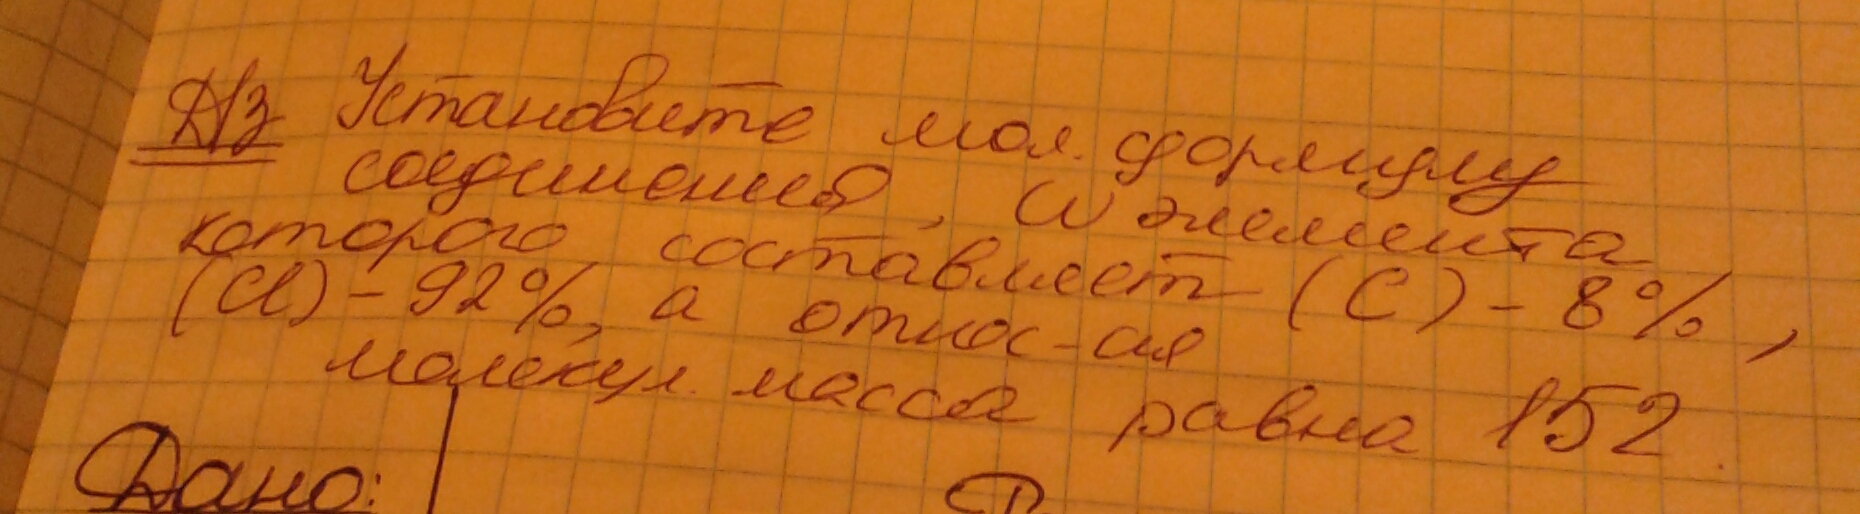 Д/з Установите мол. формулу
соединения, W элемента
которого составляет (C) - 8%,
(Cl) - 92%, а относ-ая
молекул. масса равна 152.
Дано: